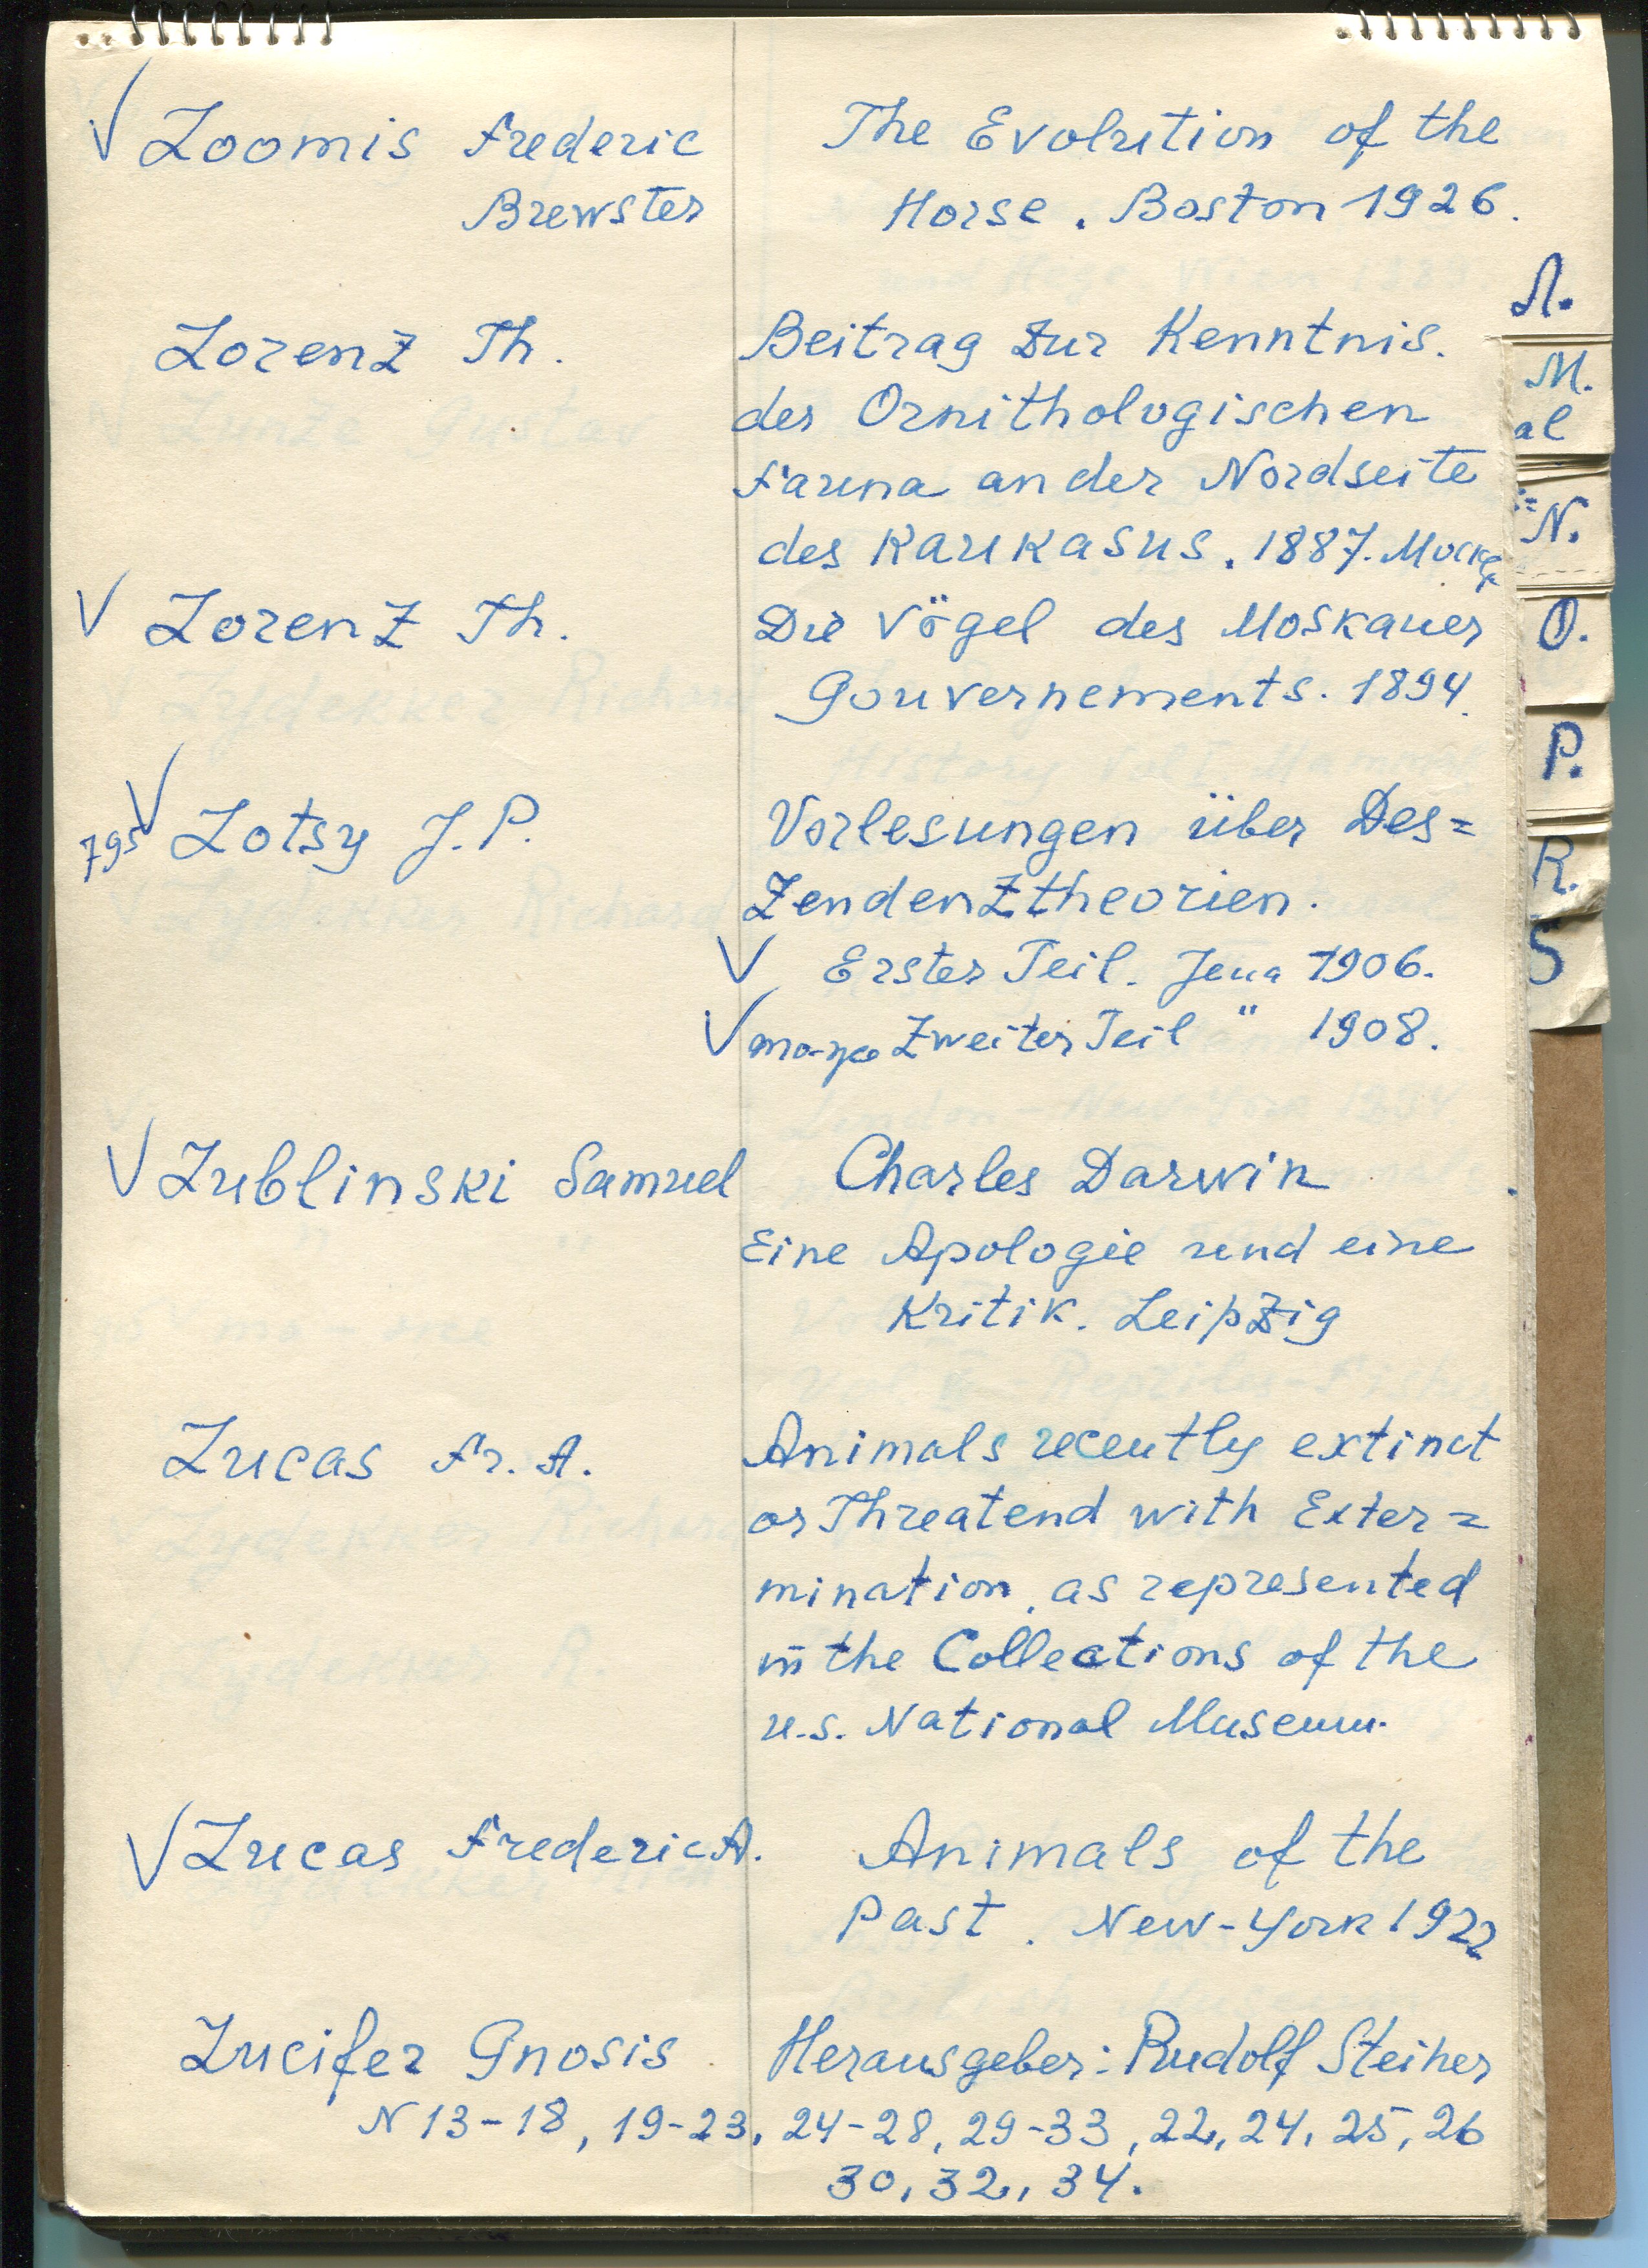 √ Loomis Frederic The Evolution of the
Brewster Horse. Boston 1926.
Lorenz Th. Beitrag zur Kenntnis.
der Ornithologischen
Fauna an der Nordseite
des Kaukasus. 1887.
√ Lorenz Th. Die Vögel des Moskauer
Gouvernements. 1894.
√ 795 Lotsy J. P. Vorlesungen über Des=
zendenztheorien.
√ Erster Teil. Jena 1906.
√ Zweiter Teil " 1908.
√ Lublinski Samuel Charles Darwin
Eine Apologie und eine
Kritik. Leipzig
Lucas Fr. A. Animals recently extinct
or Threatend with Exter=
mination, as represented
in the Collections of the
U.S. National Museum.
√ Lucas Frederic A. Animals of the
Past. New-York 1922
Lucifer Gnosis Herausgeber: Rudolf Steiner
N 13-18, 19-23, 24-28, 29-33, 22, 24, 25, 26
30, 32, 34.
Л.
M.
al
N.
O.
P.
R.
S